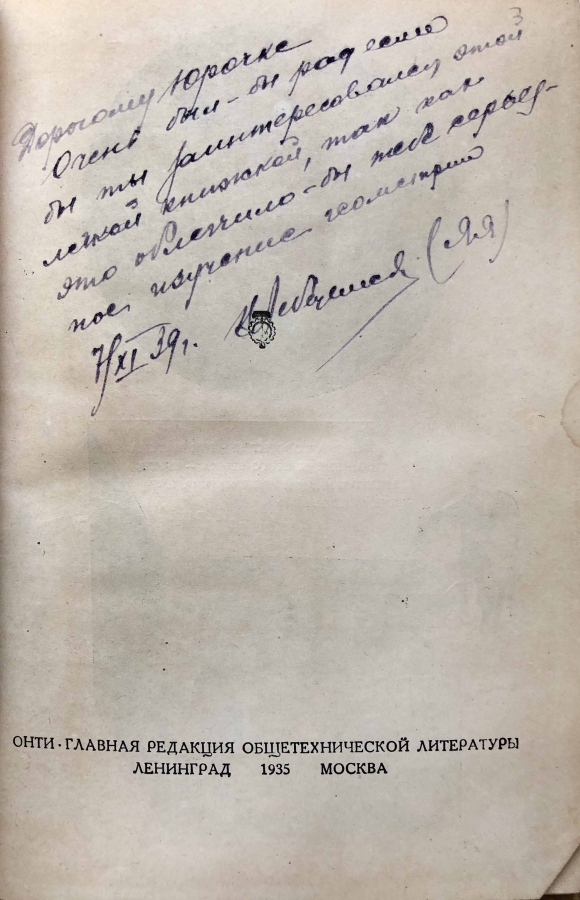 3
Дорогому Юрочке
Очень был-бы рад если
бы ты заинтересовался этой
легкой книжкой, так как
это облегчило-бы тебе серьез-
ное изучение геометрии
7/XI 39 г.
ОНТИ · ГЛАВНАЯ РЕДАКЦИЯ ОБЩЕТЕХНИЧЕСКОЙ ЛИТЕРАТУРЫ
ЛЕНИНГРАД 1935 МОСКВА